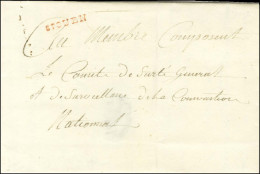 Au Membre Composent
Le Comité de Surté General
et de Surveillance de la Convention
National